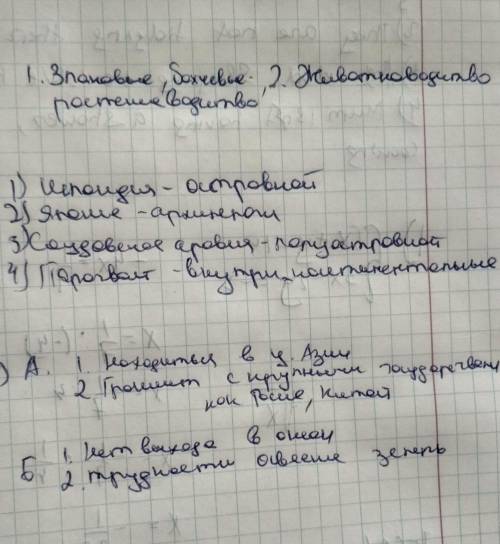 1. Злаковые, бахчевые. 2. Животноводство
растениеводство,
1) Исландия - островной
2) Япония - архипелаг
3) Саудовская аравия - полуостровной
4) Парагвай - внутри_континентальные
) А. 1. Находиться в ц. Азии
2. Граничит с крупными государствами
как Росие, Китай
Б 1. нет выхода в океан
2. трудности освоение земель